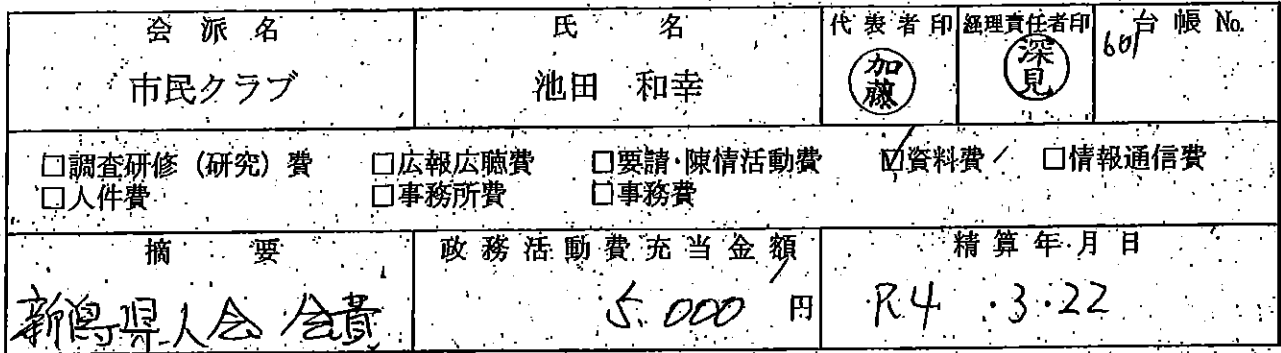 会派名 氏名 代表者印 経理責任者印 台帳No.
市民クラブ 池田 和幸 加藤 深見 601
□調査研修(研究)費 □広報広聴費 □要請・陳情活動費 ☑資料費 □情報通信費
□人件費 □事務所費 □事務費
摘要 政務活動費充当金額 精算年月日
新潟県人会 会費 5.000円 R4.3.22